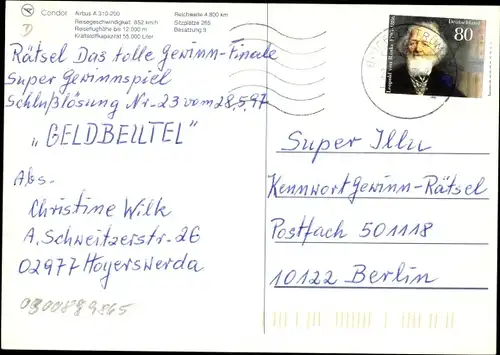 Condor
Airbus A 310-200
Reisegeschwindigkeit 852 km/h
Reiseflughöhe bis 12 000 m
Kraftstoffkapazität 55.000 Liter
Reichweite 4.800 km
Sitzplätze 265
Besatzung 9
Rätsel Das tolle Gewinn-Finale
Super Gewinnspiel
Schlußlösung Nr-23 vom 28.5.97
„GELDBEUTEL"
Abs-
Christine Wilk
A. Schweitzerstr-26
02977 Hoyerswerda
0300889865
Deutschland
80
Leopold von Ranke 1795-1886
Super Illu
Kennwort Gewinn-Rätsel
Postfach 501118
10122 Berlin